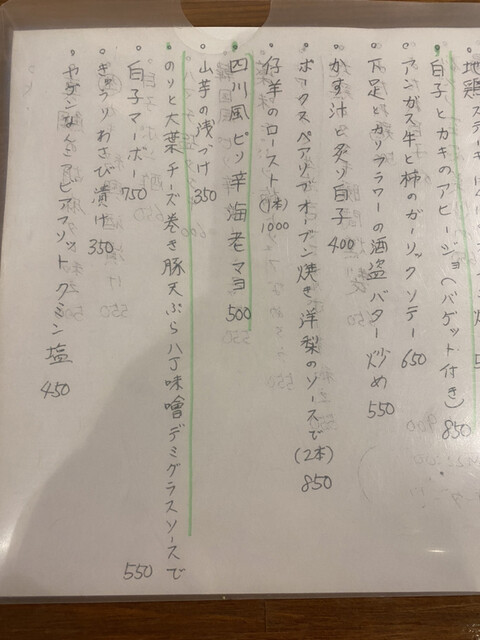 地鶏ステーキ
白子とカキのアヒージョ(バゲット付き) 850
アンガス牛と柿のガーリックソテー 650
下足とカリフラワーの酒盗バター炒め 550
かす汁と炙り白子 400
ポークスペアリブオーブン焼き洋梨のソースで(2本) 850
仔羊のロースト(1本) 1000
四川風ピリ辛海老マヨ 500
山芋の浅づけ 350
のりと大葉チーズ巻き豚天ぷら八丁味噌デミグラスソースで 550
白子マーボー 750
きゅうりわさび漬け 350
ヤゲンなんこつ クミン塩 450